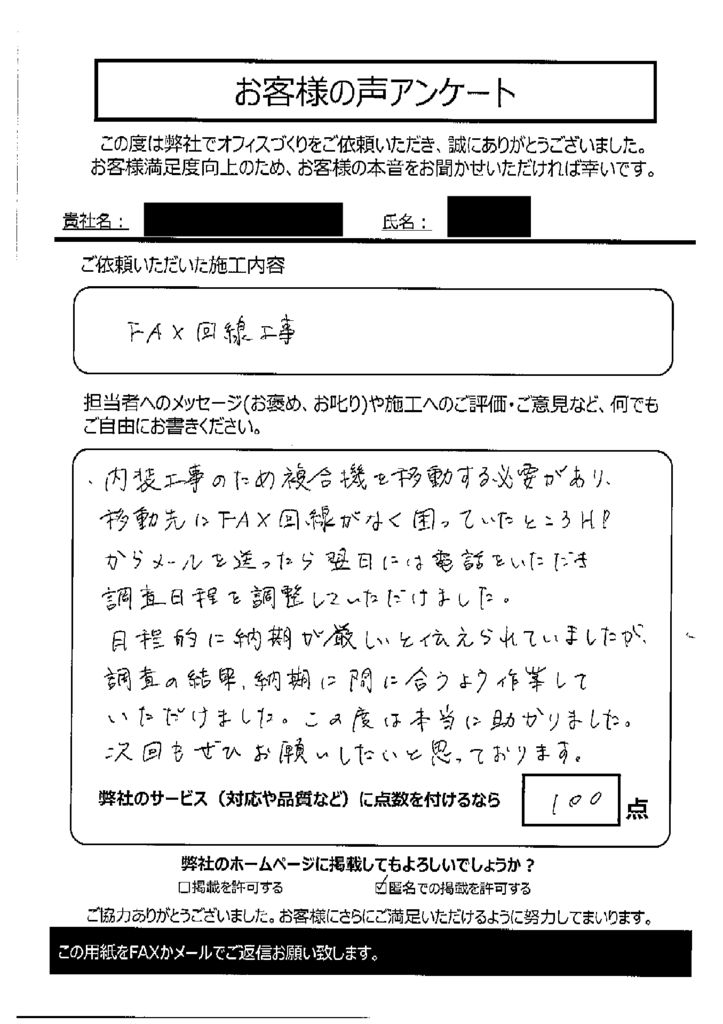 お客様の声アンケート
この度は弊社でオフィスづくりをご依頼いただき、誠にありがとうございました。
お客様満足度向上のため、お客様の本音をお聞かせいただければ幸いです。
貴社名： 氏名：
ご依頼いただいた施工内容
FAX回線工事
担当者へのメッセージ(お褒め、お叱り)や施工へのご評価・ご意見など、何でも
ご自由にお書きください。
、内装工事のため複合機を移動する必要があり、
移動先にFAX回線がなく困っていたところHP
からメールを送ったら翌日には電話をいただき
調査日程を調整していただけました。
日程的に納期が厳しいと伝えられていましたが、
調査の結果、納期に間に合うよう作業して
いただけました。この度は本当に助かりました。
次回もぜひお願いしたいと思っております。
弊社のサービス（対応や品質など）に点数を付けるなら 100 点
弊社のホームページに掲載してもよろしいでしょうか？
□掲載を許可する ☑匿名での掲載を許可する
ご協力ありがとうございました。お客様にさらにご満足いただけるように努力してまいります。
この用紙をFAXかメールでご返信お願い致します。